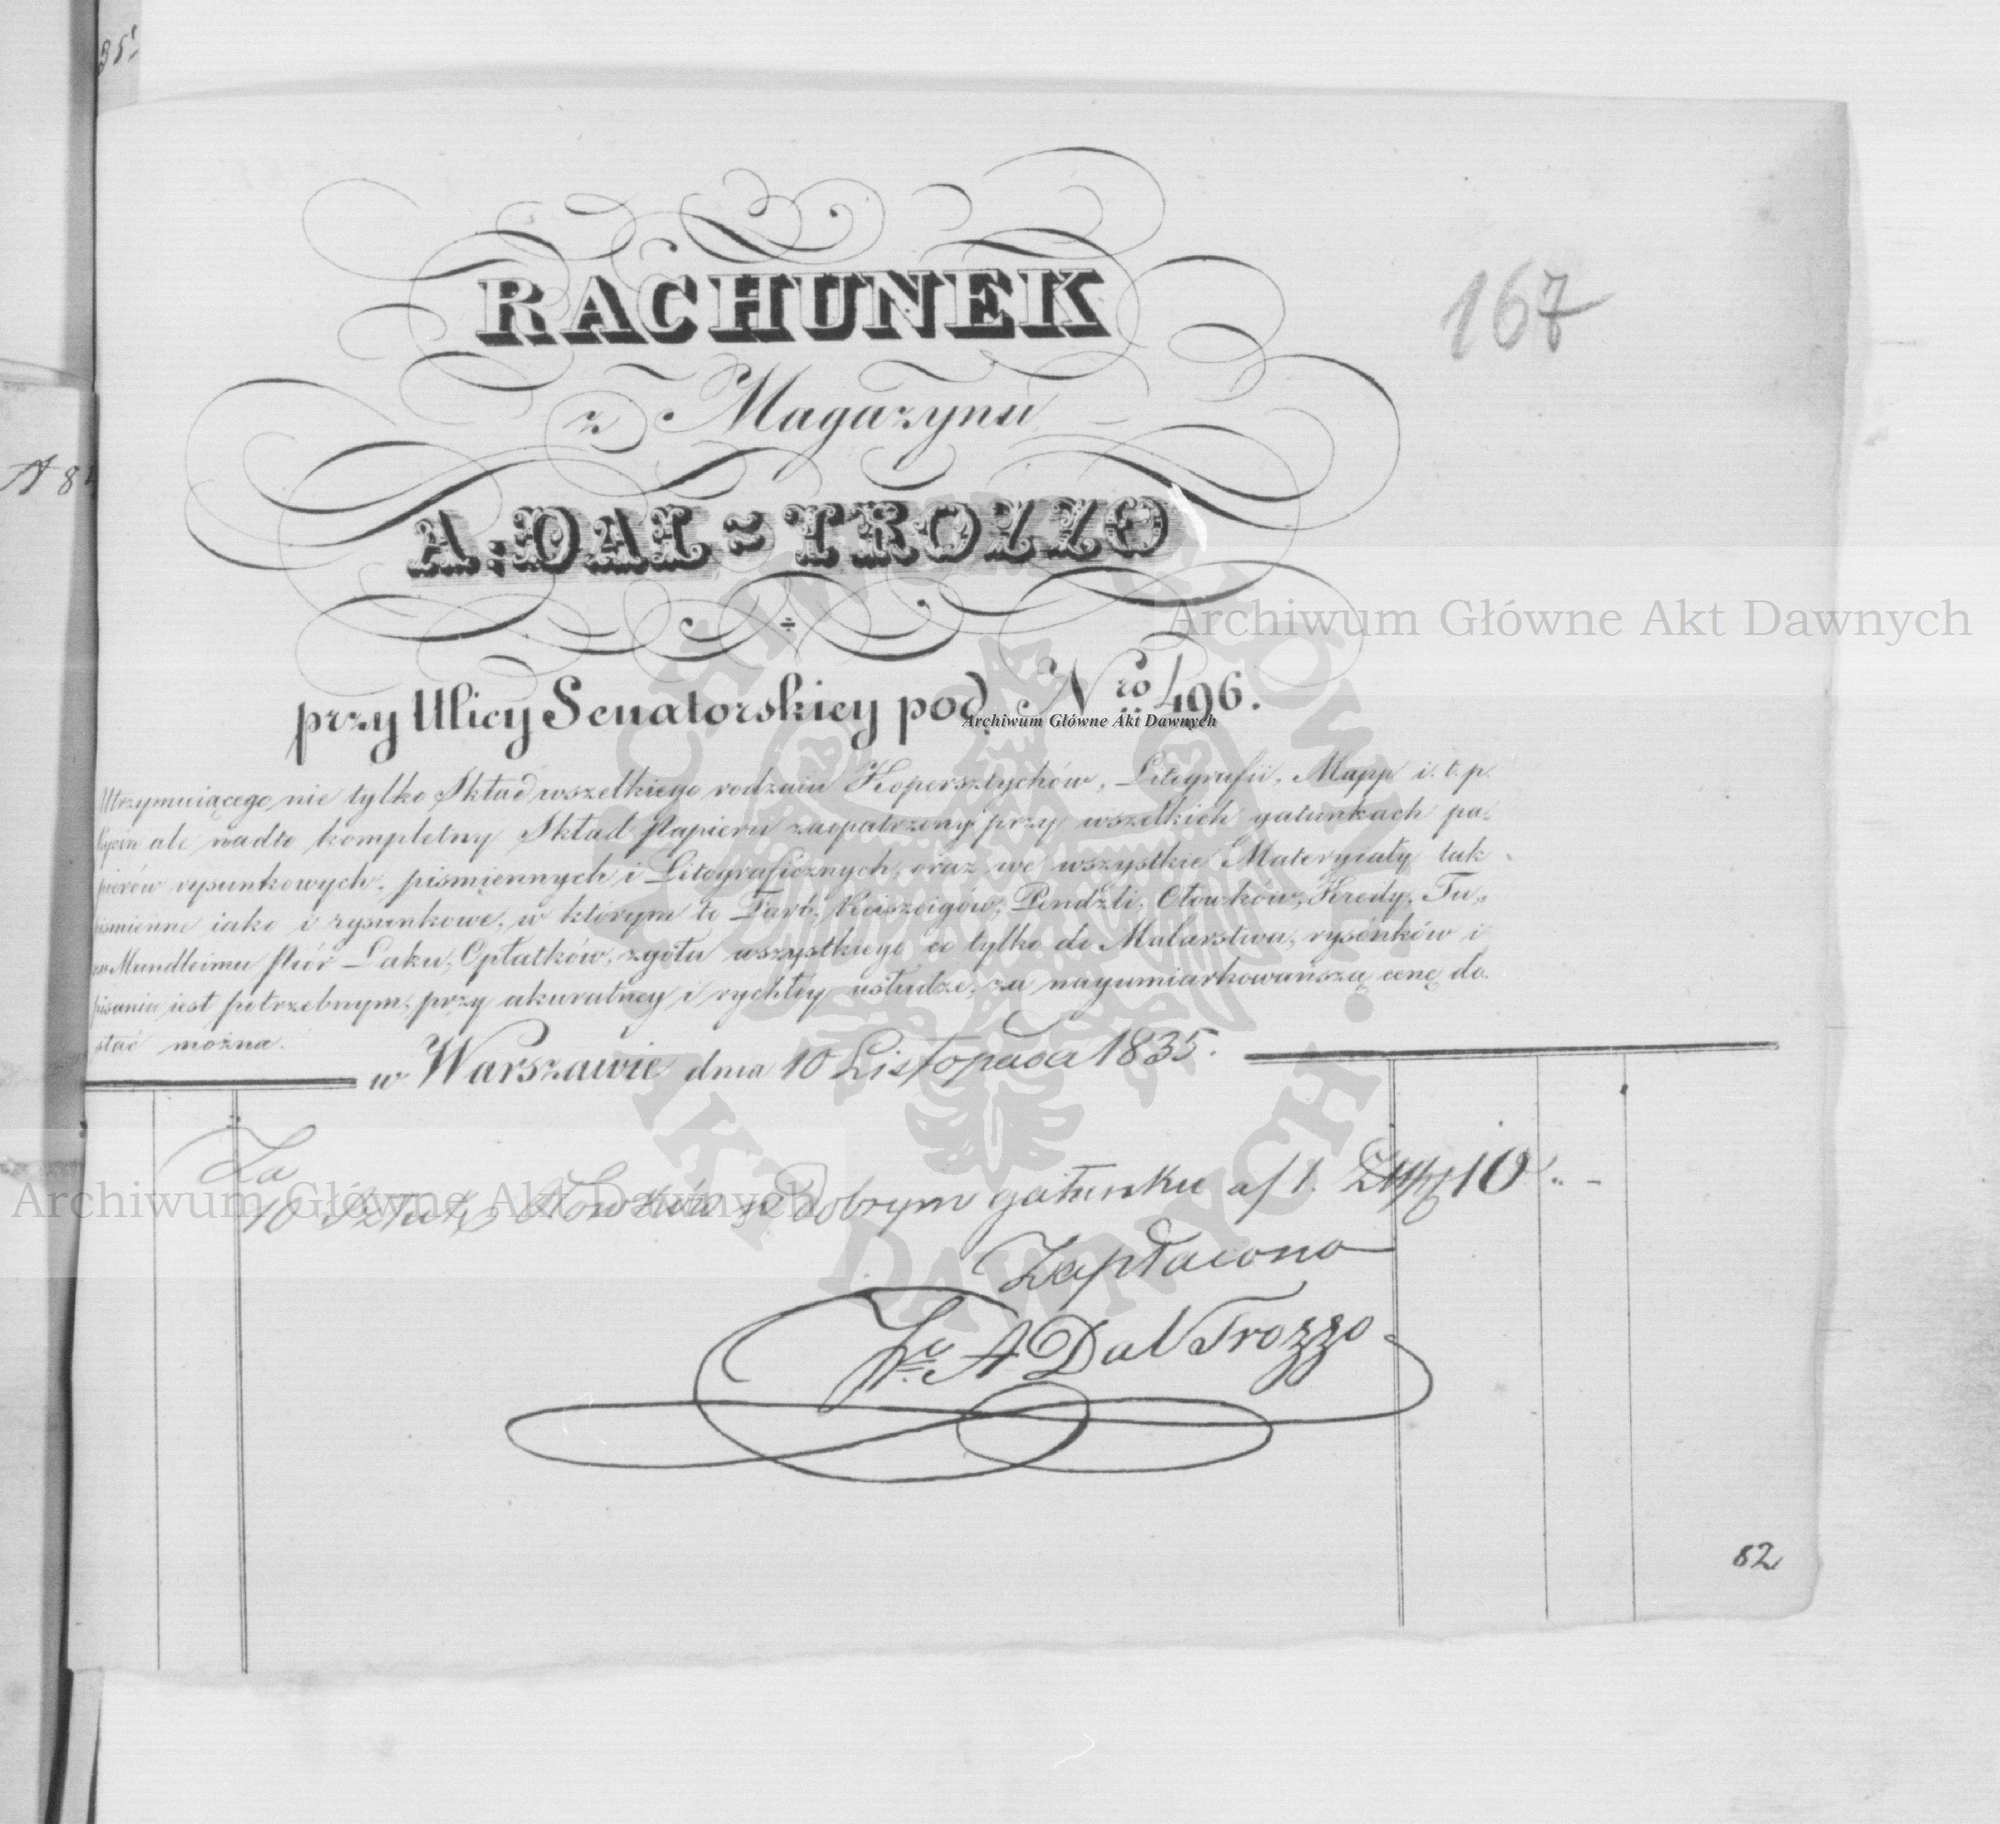 35
167
RACHUNEK
z Magazynu
A. DAL = TROZZO
A 8
Archiwum Główne Akt Dawnych
przy Ulicy Senatorskiey pod Nro 496.
Archiwum Główne Akt Dawnych
Utrzymuiącego nie tylko Skład wszelkiego rodzaiu Kopersztychów, Litografii, Mapp i. t. p.
ale nadto kompletny Skład Papieru zaopatrzony przy wszelkich gatunkach pa-
pierów rysunkowych, pismiennych i Litograficznych, oraz we wszystkie Materyiały tak
pismienne iako i rysunkowe, w którym to Farb, Reiszeigów, Pendzli, Ołowków, Kredy, Tu-
Mundleimu Piór Laku, Opłatków, zgoła wszystkiego co tylko do Malarstwa, rysónków i
pisania iest potrzebnym, przy akuratney i rychłey usłudze, za nayumiarkowańszą cenę do-
stać można.
w Warszawie dnia 10 Listopada 1835.
Za
10 Sztuk Ołowków w dobrym gatunku a f 1. Złp 10 ..-
Archiwum Główne Akt Dawnych
Zapłacono
A Dal Trozzo
82
ARCHIWUM GŁÓWNE AKT DAWNYCH